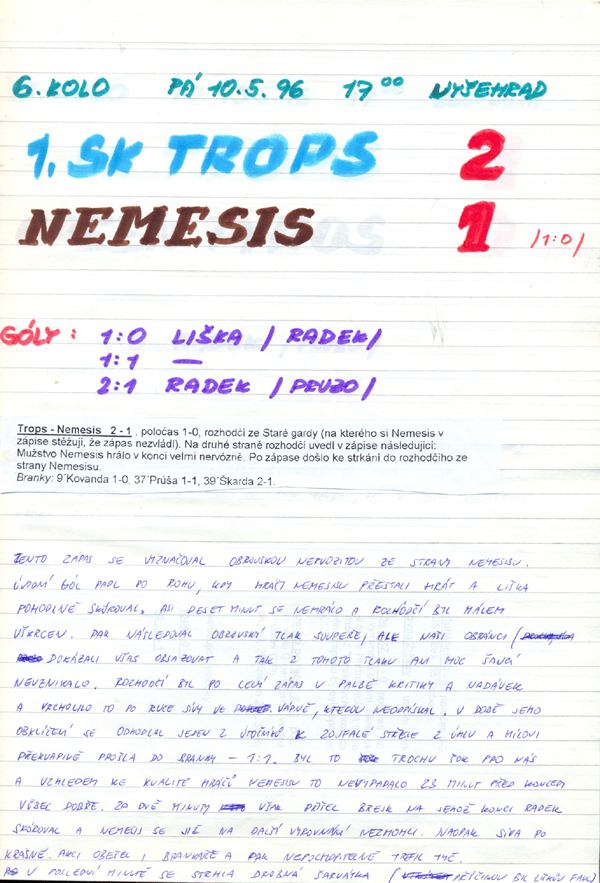 6. KOLO PÁ 10.5.96 17⁰⁰ VYŠEHRAD
1. SK TROPS 2
NEMESIS 1 /1:0/
GÓLY: 1:0 LIŠKA /RADEK/
1:1 —
2:1 RADEK /PRUZO/
Trops - Nemesis 2 - 1 , poločas 1-0, rozhodčí ze Staré gardy (na kterého si Nemesis v
zápise stěžují, že zápas nezvládl). Na druhé straně rozhodčí uvedl v zápise následující:
Mužstvo Nemesis hrálo v konci velmi nervózně. Po zápase došlo ke strkání do rozhodčího ze
strany Nemesisu.
Branky: 9´Kovanda 1-0, 37´Průša 1-1, 39´Škarda 2-1.
TENTO ZÁPAS SE VYZNAČOVAL OBROVSKOU NERVOZITOU ZE STRANY NEMESISU.
ÚVODNÍ GÓL PADL PO ROHU, KDY HRÁČI NEMESISU PŘESTALI HRÁT A LIŠKA
POHODLNĚ SKÓROVAL. ASI DESET MINUT SE NEHRÁLO A ROZHODČÍ BYL MÁLEM
VYKRCEN. PAK NÁSLEDOVAL OBROVSKÝ TLAK SOUPEŘE, ALE NAŠI OBRÁNCI
DOKÁZALI VČAS OBSAZOVAT A TAK Z TOHOTO TLAKU ANI MOC ŠANCÍ
NEVZNIKALO. ROZHODČÍ BYL PO CELÝ ZÁPAS V PALBĚ KRITIKY A NADÁVEK
A VRCHOLILO TO PO RUCE SÍVY VE VÁPNĚ, KTEROU NEODPÍSKAL. V DOBĚ JEHO
OBKLÍČENÍ SE ODHODLAL JEDEN Z ÚTOČNÍKŮ K ZOUFALÉ STŘELE Z ÚHLU A MÍČOVI
PŘEKVAPIVĚ PROŠLA DO BRANKY - 1:1. BYL TO TROCHU ŠOK PRO NÁS
A VZHLEDEM KE KVALITĚ HRÁČŮ NEMESISU TO NEVYPADALO 23 MINUT PŘED KONCEM
VŮBEC DOBŘE. ZA DVĚ MINUTY VŠAK PŘIŠEL BREJK NA JEHOŽ KONCI RADEK
SKÓROVAL A NEMESIS SE JIŽ NA DALŠÍ VYROVNÁNÍ NEZMOHLI. NAOPAK SÍVA PO
KRÁSNÉ AKCI OBEŠEL I BRANKÁŘE A PAK NEPOCHOPITELNĚ TREFIL TYČ.
V POSLEDNÍ MINUTĚ SE STRHLA DROBNÁ ŠARVÁTKA ( PŘÍČINOU BYL LIŠKŮV FAUL)